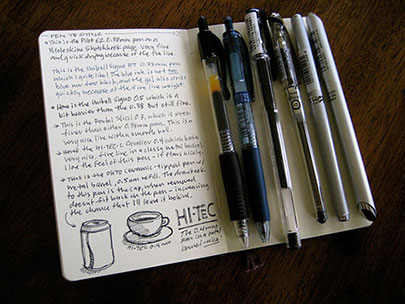 PEN TESTING
→ This is the Pilot G2 0.38mm pen on a
Moleskine Sketchbook page. Very fine
and quick drying because of the fine line.
This is the Uniball Signo BIT 0.38mm pen
which I quite like! The blue ink is not too
blue nor too black and the gel ink dries
quickly because of the fine line weight.
→ Here is the Uniball Signo 0.5 which is a
bit heavier than the 0.38 but still fine.
→ This is the Pentel Slicci 0.3, which is even
finer than either 0.38mm pen. This is a
very nice line with a smooth ball.
→ Here's the HI-TEC-C 0.4 which has a
very nice, fine line in a classy metal barrel.
I like the feel of this pen — it flows nicely.
→ This is the OHTO Ceramic-tipped pen w/
metal barrel, 0.5mm refill. The drawback
to this pen is the cap, when removed
doesn't fit back on the pen — increasing
the chance that I'll leave it behind.
HI-TEC
The 0.4mm
pen in a metal
barrel = nice!
HI-TEC-C 0.4mm